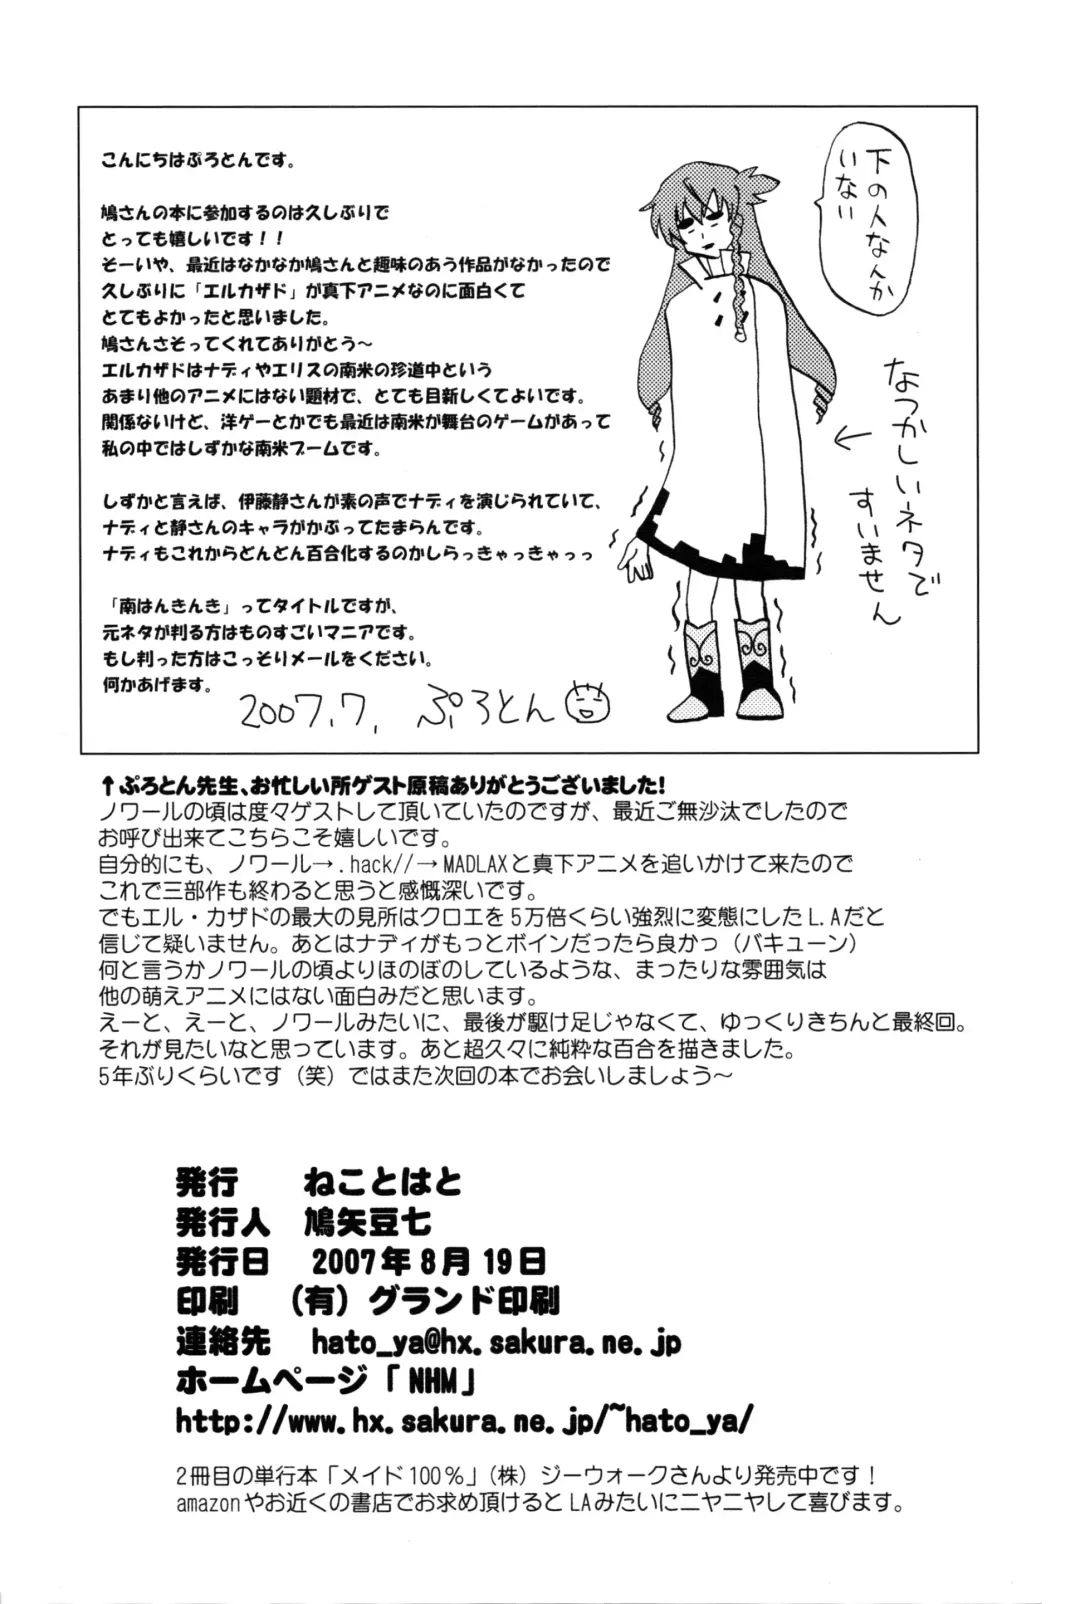 こんにちはぷろとんです。
鳩さんの本に参加するのは久しぶりで
とっても嬉しいです！！
そーいや、最近はなかなか鳩さんと趣味のあう作品がなかったので
久しぶりに「エルカザド」が真下アニメなのに面白くて
とてもよかったと思いました。
鳩さんさそってくれてありがとう〜
エルカザドはナディやエリスの南米の珍道中という
あまり他のアニメにはない題材で、とても目新しくてよいです。
関係ないけど、洋ゲーとかでも最近は南米が舞台のゲームがあって
私の中ではしずかな南米ブームです。
しずかと言えば、伊藤静さんが素の声でナディを演じられていて、
ナディと静さんのキャラがかぶってたまらんです。
ナディもこれからどんどん百合化するのかしらっきゃっきゃっっ
「南はんきんき」ってタイトルですが、
元ネタが判る方はものすごいマニアです。
もし判った方はこっそりメールをください。
何かあげます。
2007.7. ぷろとん
下の人なんか
いない
←
なつかしいネタで
すいません
↑ぷろとん先生、お忙しい所ゲスト原稿ありがとうございました！
ノワールの頃は度々ゲストして頂いていたのですが、最近ご無沙汰でしたので
お呼び出来てこちらこそ嬉しいです。
自分的にも、ノワール→.hack//→MADLAXと真下アニメを追いかけて来たので
これで三部作も終わると思うと感慨深いです。
でもエル・カザドの最大の見所はクロエを5万倍くらい強烈に変態にしたL.Aだと
信じて疑いません。あとはナディがもっとボインだったら良かっ（バキューン）
何と言うかノワールの頃よりほのぼのしているような、まったりな雰囲気は
他の萌えアニメにはない面白みだと思います。
えーと、えーと、ノワールみたいに、最後が駆け足じゃなくて、ゆっくりきちんと最終回。
それが見たいなと思っています。あと超久々に純粋な百合を描きました。
5年ぶりくらいです（笑）ではまた次回の本でお会いしましょう〜
発行 ねことはと
発行人 鳩矢豆七
発行日 2007年8月19日
印刷 （有）グランド印刷
連絡先 hato_ya@hx.sakura.ne.jp
ホームページ「NHM」
http://www.hx.sakura.ne.jp/~hato_ya/
2冊目の単行本「メイド100％」（株）ジーウォークさんより発売中です！
amazonやお近くの書店でお求め頂けるとLAみたいにニヤニヤして喜びます。